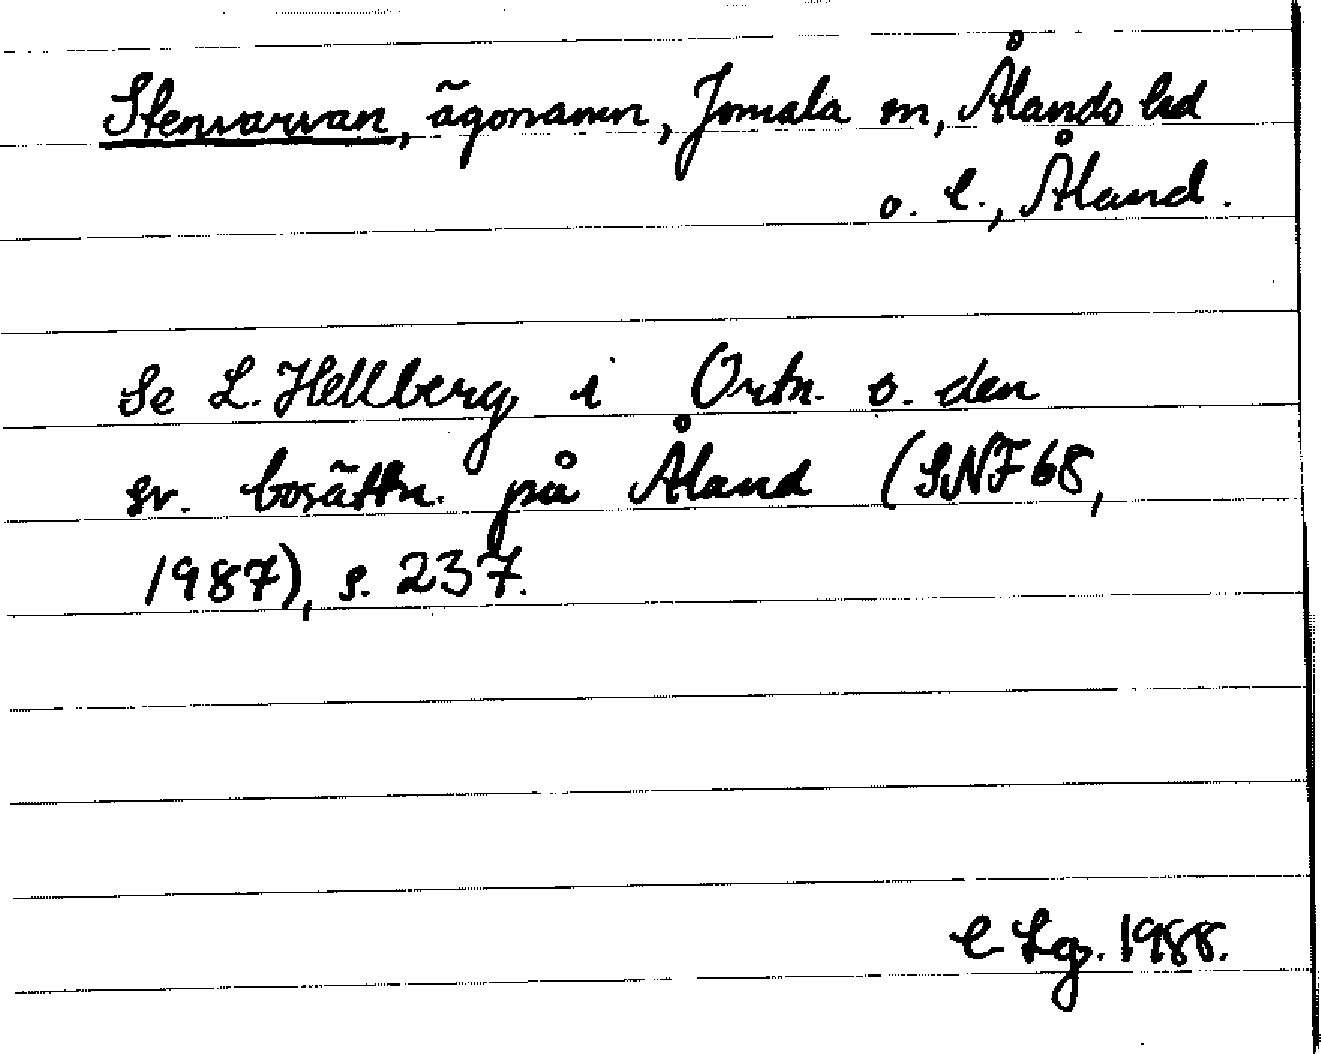 Stenvarvan, ägonamn, Jomala sn, Ålands hd
o. l., Åland.
Se L. Hellberg i Ortn. o. den
sv. bosättn. på Åland (SNF 68,
1987), s. 237.
1988.